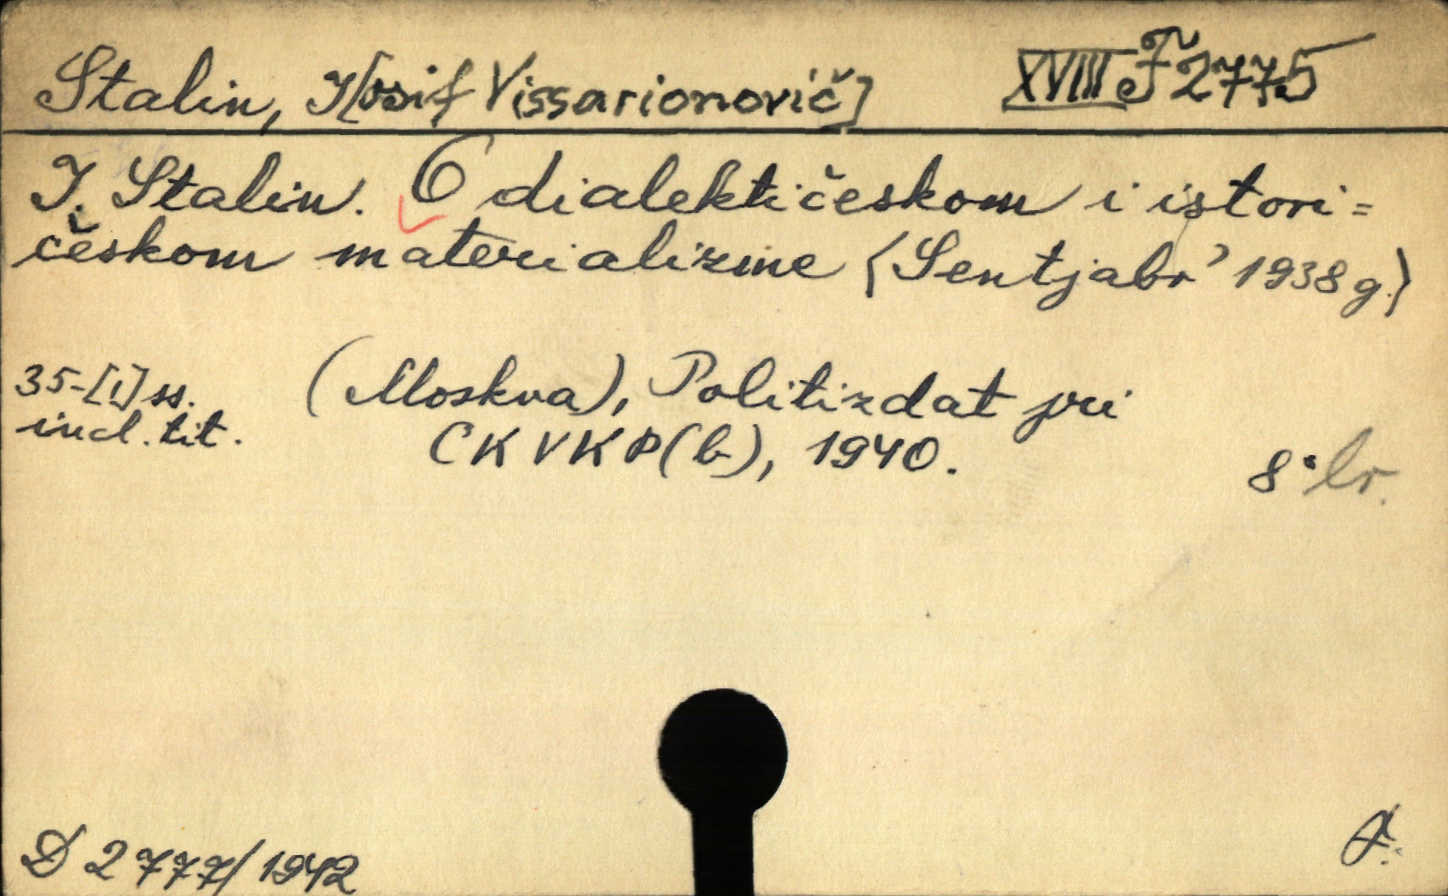 Stalin, I[osif Vissarionovič]
XVIII F 2775
I. Stalin. O dialektičeskom i istori=
českom materializme (Sentjabr' 1938 g.)
35-[1] ss.
incl. tit.
(Moskva), Politizdat pri
CK VKP(b), 1940.
8° br.
D 2777/1942